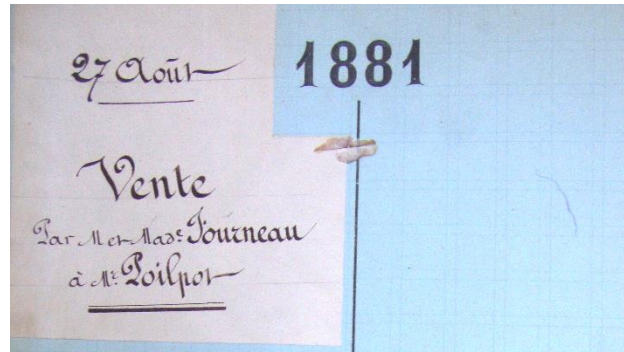 27 Août
1881
Vente
Par M et Made Fourneau
à Mr Poilpot